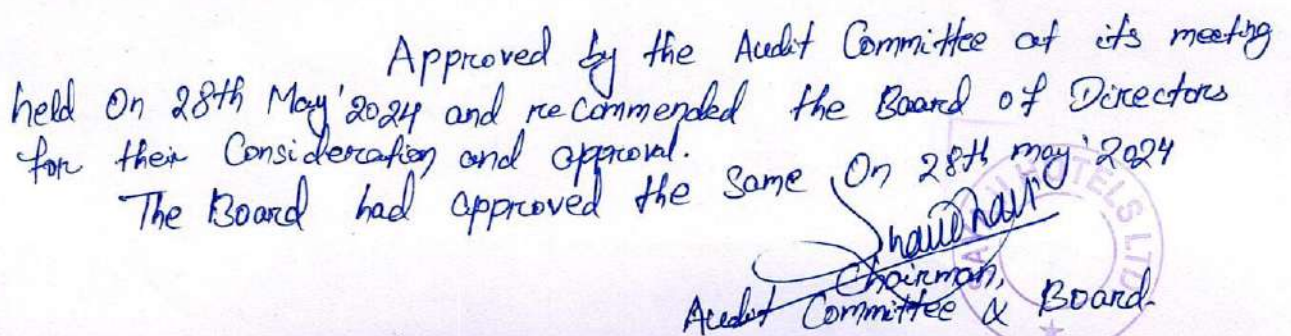 Approved by the Audit Committee at its meeting
held On 28th May'2024 and recommended the Board of Directors
for their Consideration and approval.
The Board had approved the same On 28th may'2024
Chairman,
Audit Committee & Board
HOTELS LTD